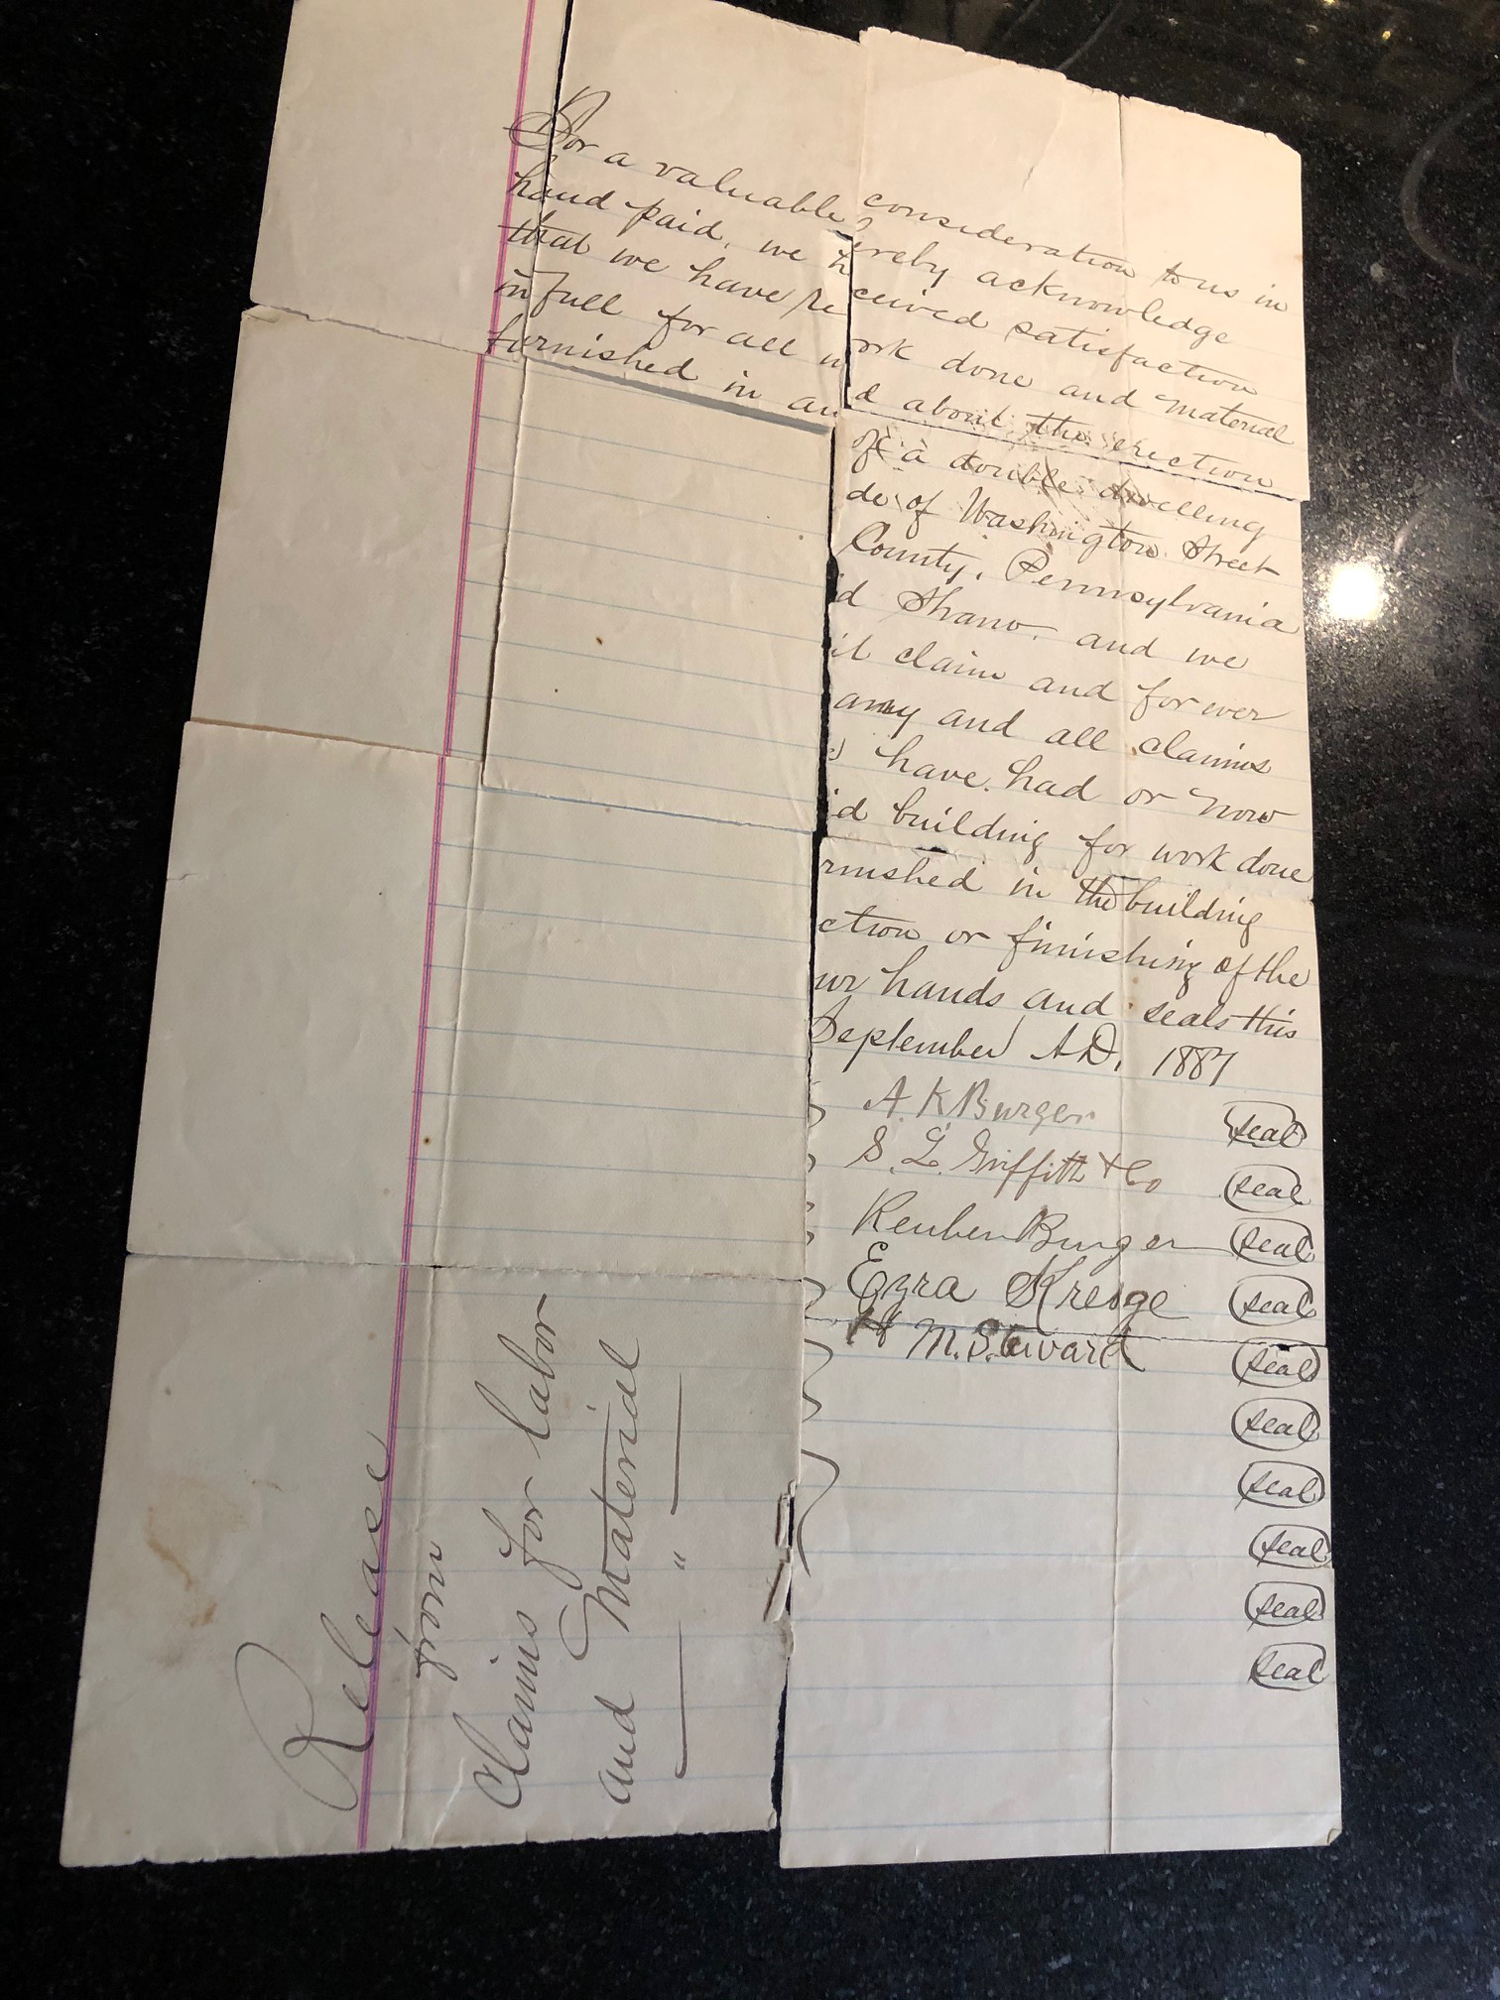 For a valuable consideration to us in
hand paid, we hereby acknowledge
that we have received satisfaction
in full for all work done and material
furnished in and about the erection
of a double dwelling
de of Washington Street
County, Pennsylvania
d Shano. and we
it claim and for ever
any and all claims
have had or now
d building for work done
rnished in the building
ction or finishing of the
ur hands and seals this
September A.D. 1887
A. K Burger seal
S. L. Griffith & Co seal
Reuben Burger seal
Ezra Kresge seal
M. Seward seal
seal
seal
seal
seal
seal
Release
from
Claims for labor
and Material
"